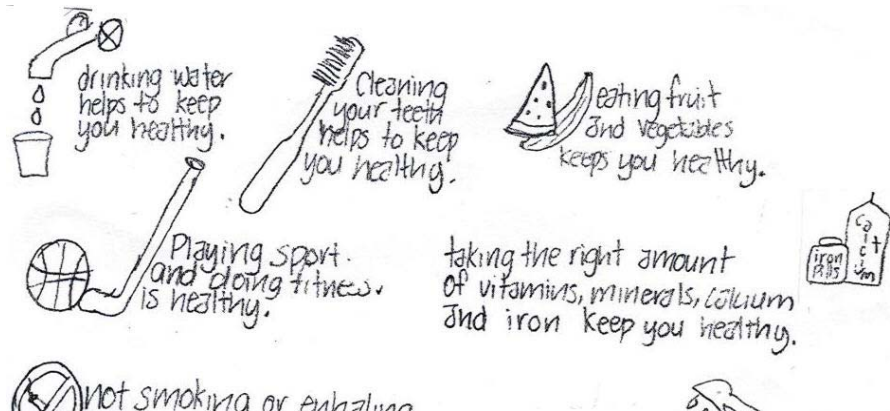 drinking water
helps to keep
you healthy.
Cleaning
your teeth
helps to keep
you healthy.
eating fruit
and vegetables
keeps you healthy.
Playing sport.
and doing fitness.
is healthy.
taking the right amount
of vitamins, minerals, calcium
and iron keep you healthy.
iron
pills
not smoking or enhaling